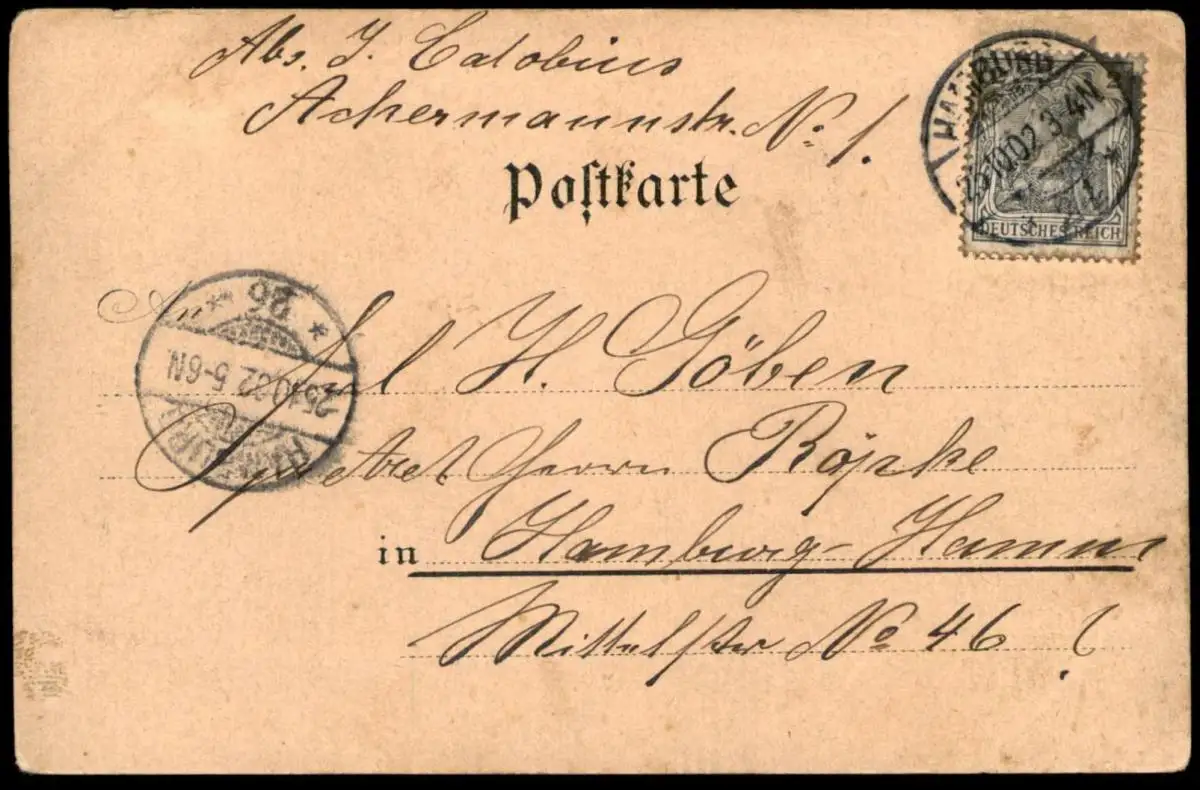 Abs. J. Catobius
Ackermannstr. No. 1.
Postkarte
HAMBURG
25.10.02 3-4N
DEUTSCHES REICH
An
26
25.10.02 5-6N.
HAMBURG
Frl H. Göben
Herrn Röpke
in Hamburg-Hamm
Mittelstr No 46